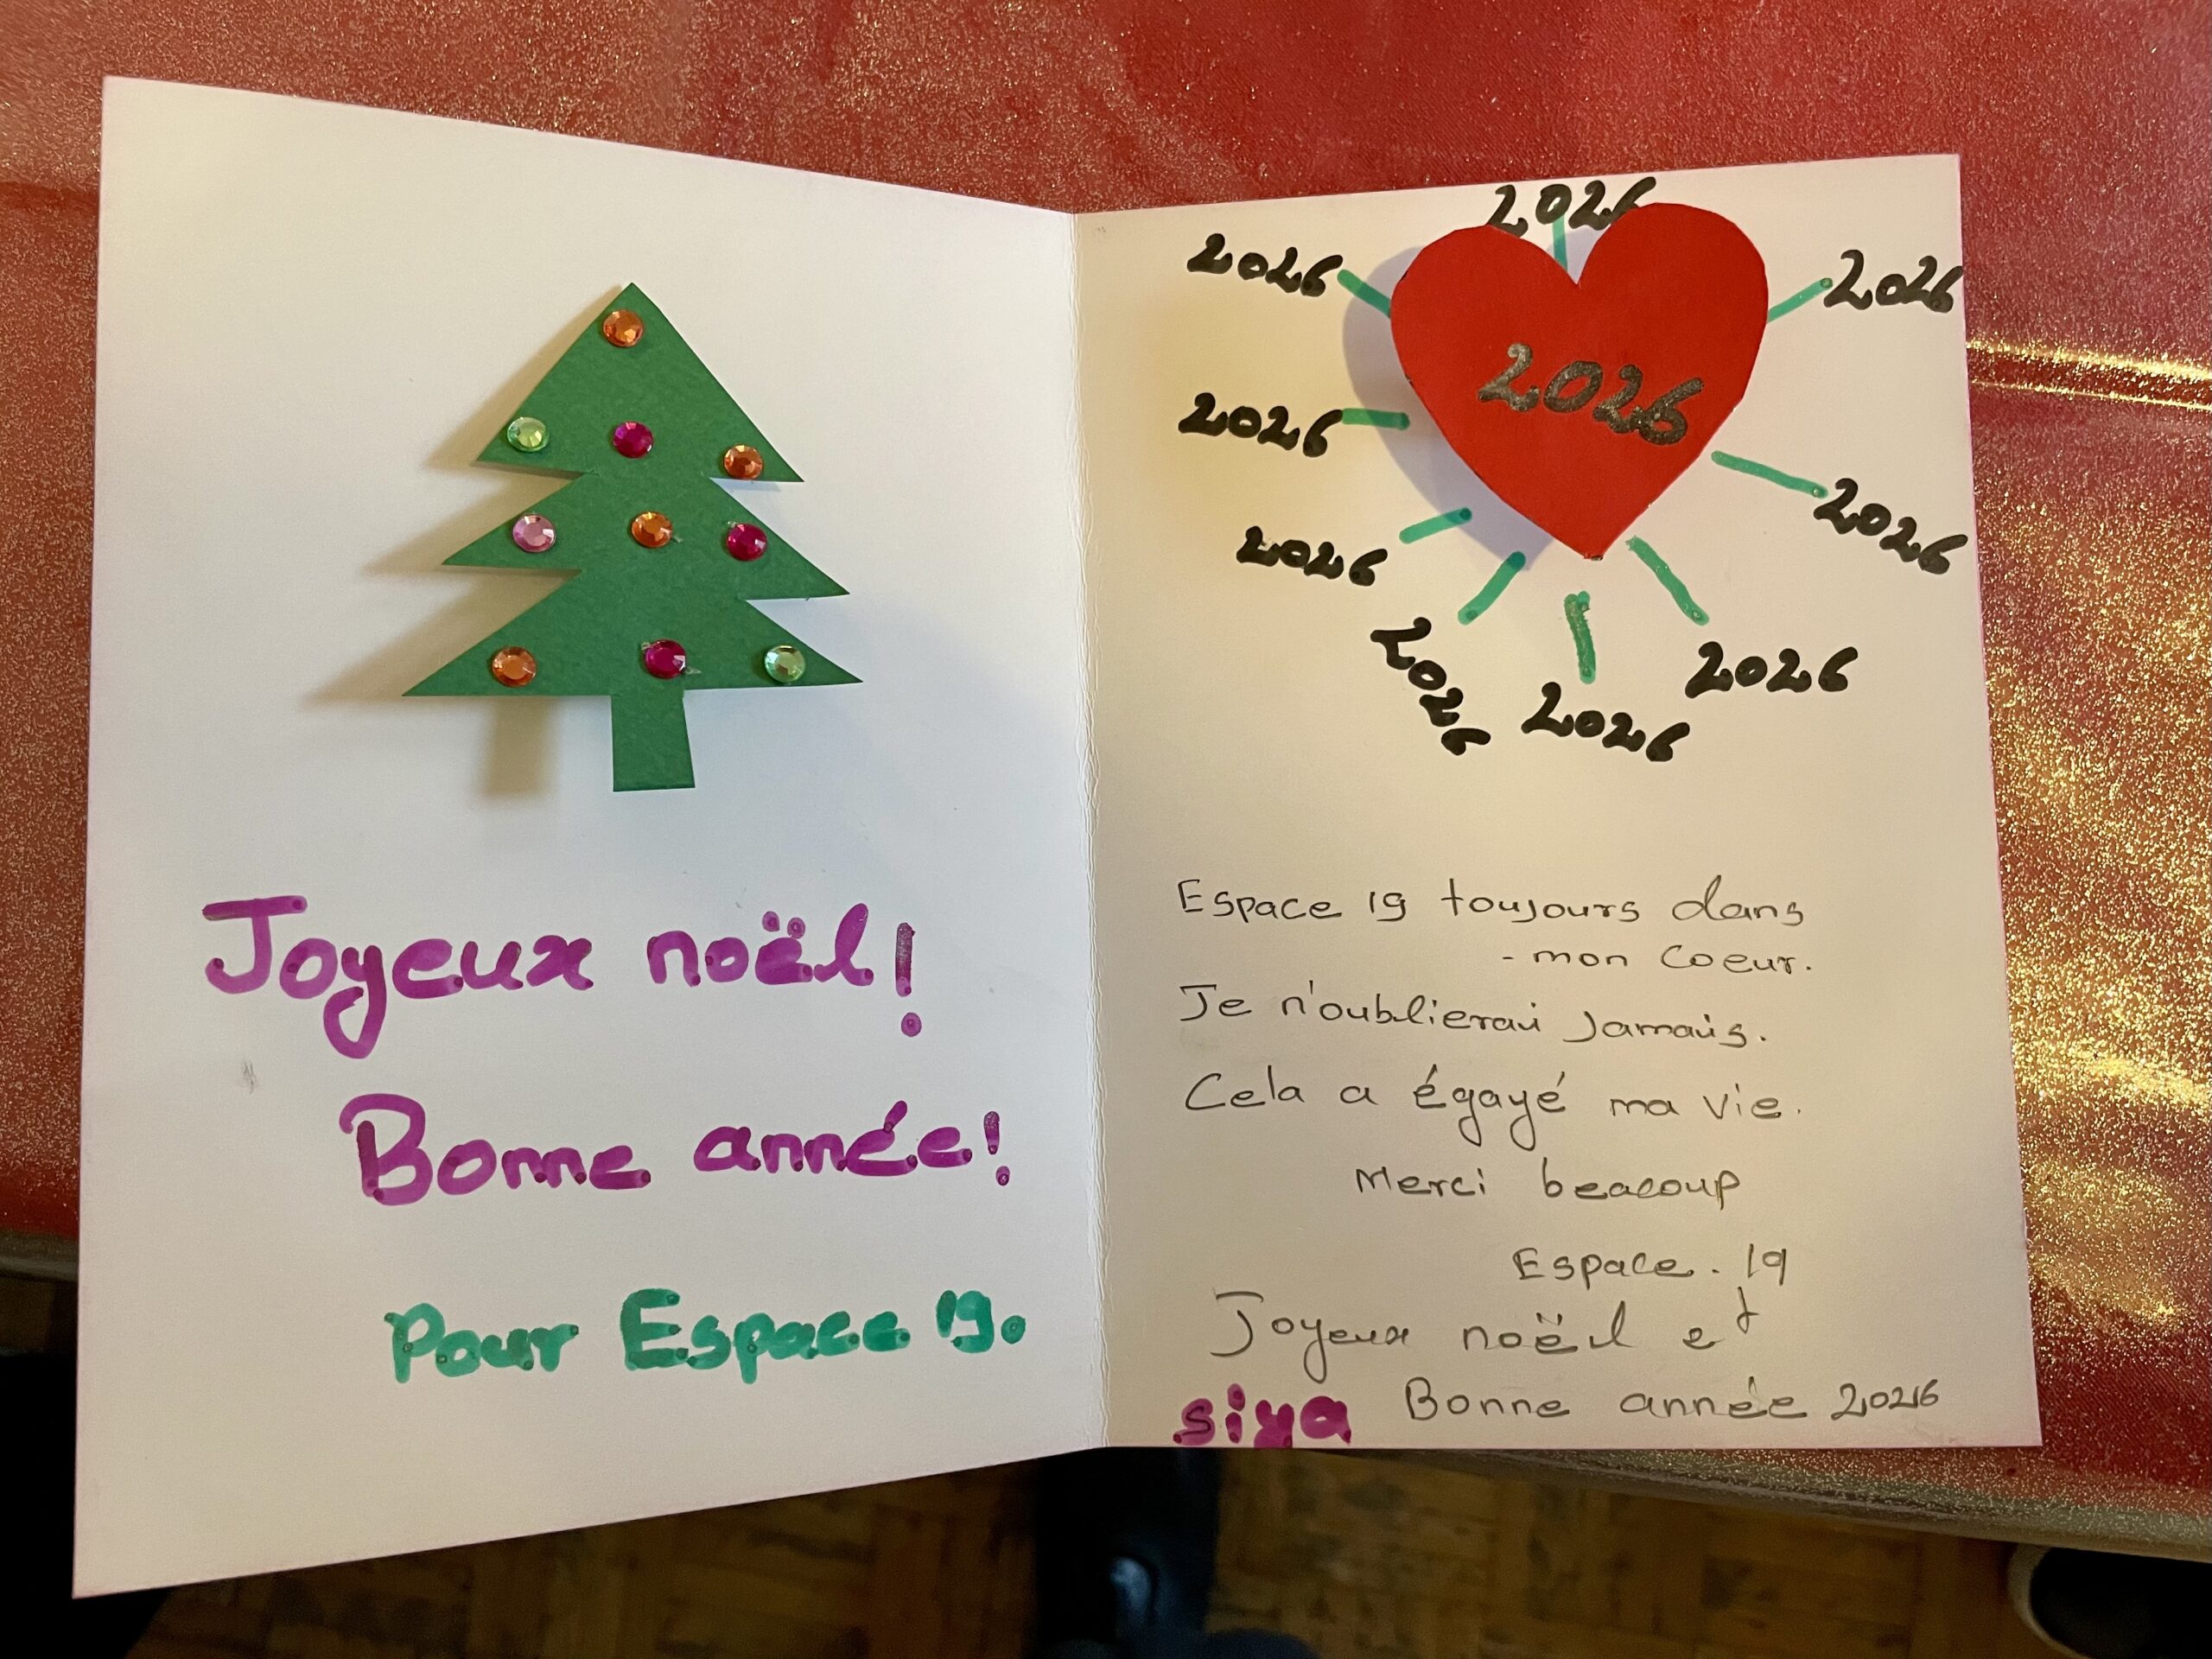 Joyeux noël!
Bonne année!
Pour Espace 19.
2026
2026
2026
2026
2026
2026
2026
2026
2026
2026
Espace 19 toujours dans
- mon coeur.
Je n'oublierai jamais.
Cela a égayé ma vie.
Merci beacoup
Espace. 19
Joyeux noël et
Bonne année 2026
siya